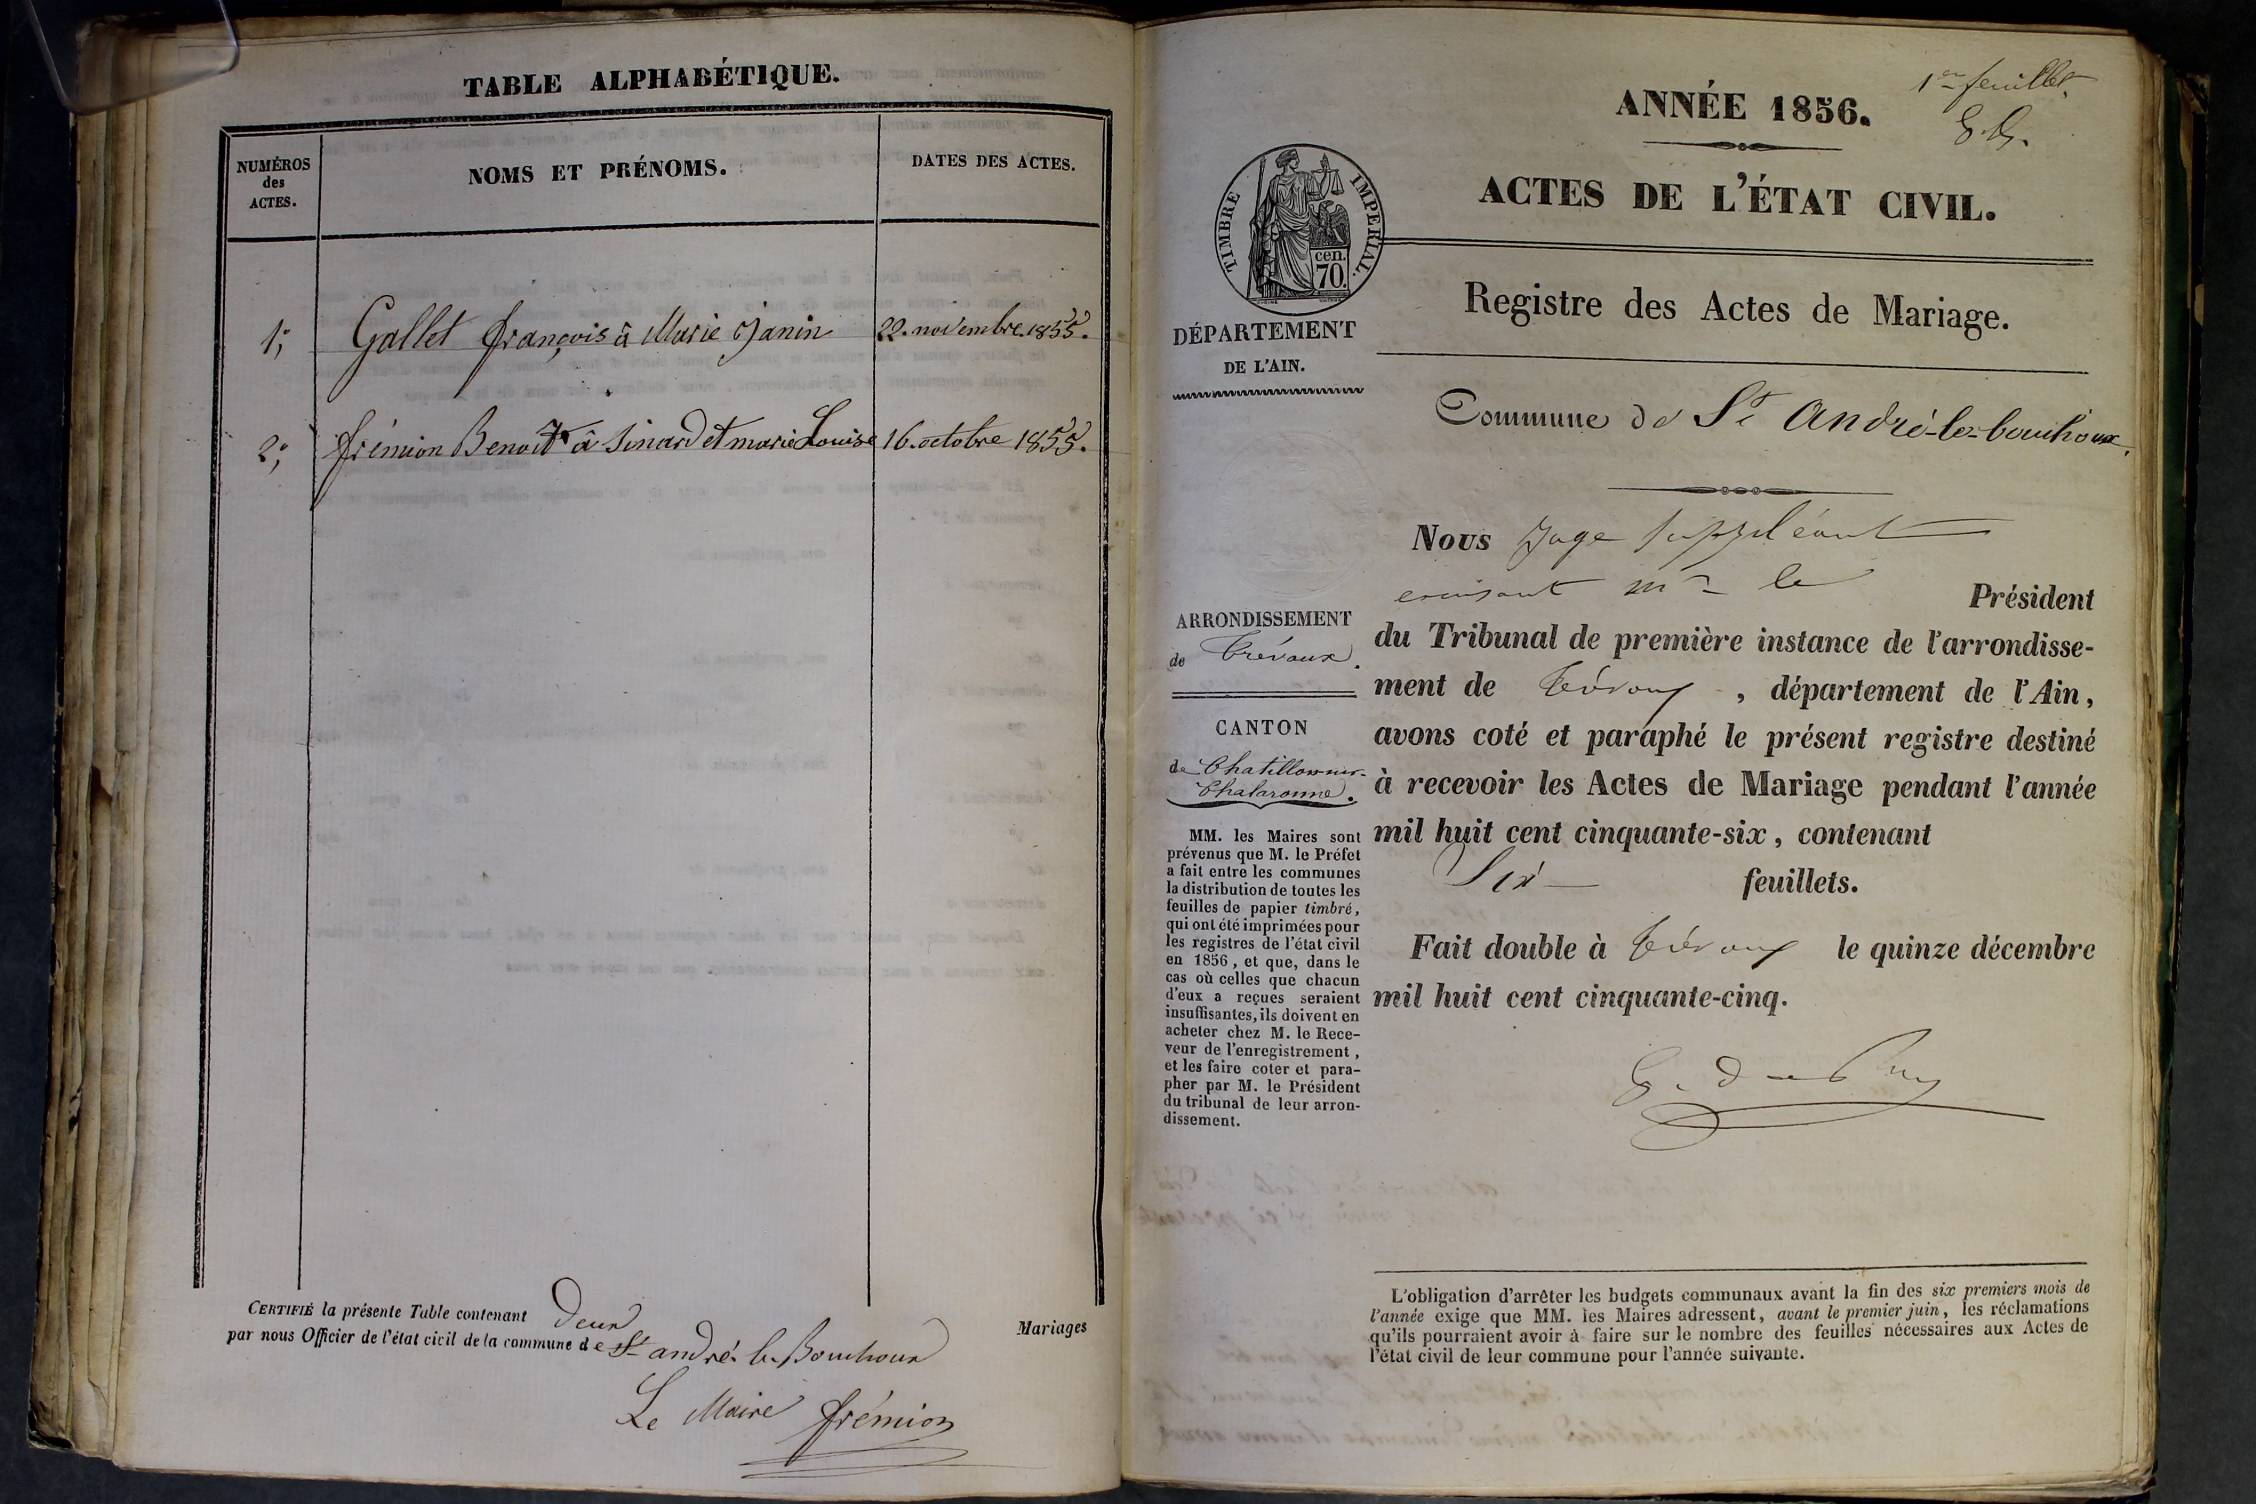 TABLE ALPHABÉTIQUE.
NUMÉROS
des
ACTES.
NOMS ET PRÉNOMS.
DATES DES ACTES.
1; Gallet françois à Marie Janin 22. novembre. 1855.
2; frémion Benoit à Sinardet marie Louise 16. octobre 1855.
CERTIFIÉ la présente Table contenant deux Mariages
par nous Officier de l'état civil de la commune de St andré le Bouchoux
Le Maire frémion
1er feuillet.
ANNÉE 1856.
ACTES DE L'ÉTAT CIVIL.
TIMBRE IMPERIAL.
cen.
70.
DÉPARTEMENT
DE L'AIN.
Registre des Actes de Mariage.
Commune de St André-le-bouchoux.
ARRONDISSEMENT
de Trévoux.
CANTON
de Chatillon-sur-
Chalaronne.
MM. les Maires sont
prévenus que M. le Préfet
a fait entre les communes
la distribution de toutes les
feuilles de papier timbré,
qui ont été imprimées pour
les registres de l'état civil
en 1856, et que, dans le
cas où celles que chacun
d'eux a reçues seraient
insuffisantes, ils doivent en
acheter chez M. le Rece-
veur de l'enregistrement,
et les faire coter et para-
pher par M. le Président
du tribunal de leur arron-
dissement.
Nous Juge suppléant
Mr le Président
du Tribunal de première instance de l'arrondisse-
ment de Trévoux, département de l'Ain,
avons coté et paraphé le présent registre destiné
à recevoir les Actes de Mariage pendant l'année
mil huit cent cinquante-six, contenant
Six feuillets.
Fait double à Trévoux le quinze décembre
mil huit cent cinquante-cinq.
L'obligation d'arrêter les budgets communaux avant la fin des six premiers mois de
l'année exige que MM. les Maires adressent, avant le premier juin, les réclamations
qu'ils pourraient avoir à faire sur le nombre des feuilles nécessaires aux Actes de
l'état civil de leur commune pour l'année suivante.